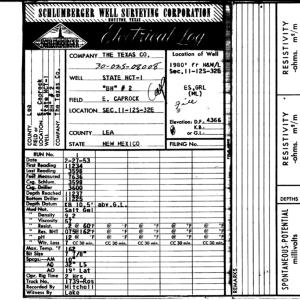 SCHLUMBERGER WELL SURVEYING CORPORATION
HOUSTON, TEXAS
Electrical Log
COMPANY THE TEXAS CO.
30-025-08008
WELL STATE NCT-1
"BH" # 2
FIELD E. CAPROCK
LOCATION SEC.11-12S-32E
COUNTY LEA
STATE NEW MEXICO
Location of Well
1980' fr N&W/L
Sec.11-12S-32E
ES,GRL
(ML)
Elevation: D.F.: 4366
K.B.:
or G.L.:
FILING No.
COUNTY
FIELD or
LOCATION
WELL
COMPANY
RUN No.
Date 2-27-53
First Reading 11234
Last Reading 3598
Feet Measured 7636
Csg. Schlum. 3598
Csg. Driller 3600
Depth Reached 11237
Bottom Driller 11225
Depth Datum KB 10.5' abv.G.L.
Mud Nat. Salt Gel
" Density 9.2
" Viscosity
" Resist.
" Res. BHT
" pH
" Wtr. Loss CC 30 min. CC 30 min. CC 30 min. CC 30 min.
Max. Temp. °F 162
Bit Size 7 7/8"
Spcgs.—AM
AO
AO 19' Lat
Opr. Rig Time 2 Hrs.
Truck No. 1739-Ros
Recorded By Mitchell
Witness By Lake
REMARKS
RESISTIVITY
-ohms. m²/m
RESISTIVITY
-ohms. m²/m
DEPTHS
SPONTANEOUS-POTENTIAL
millivolts